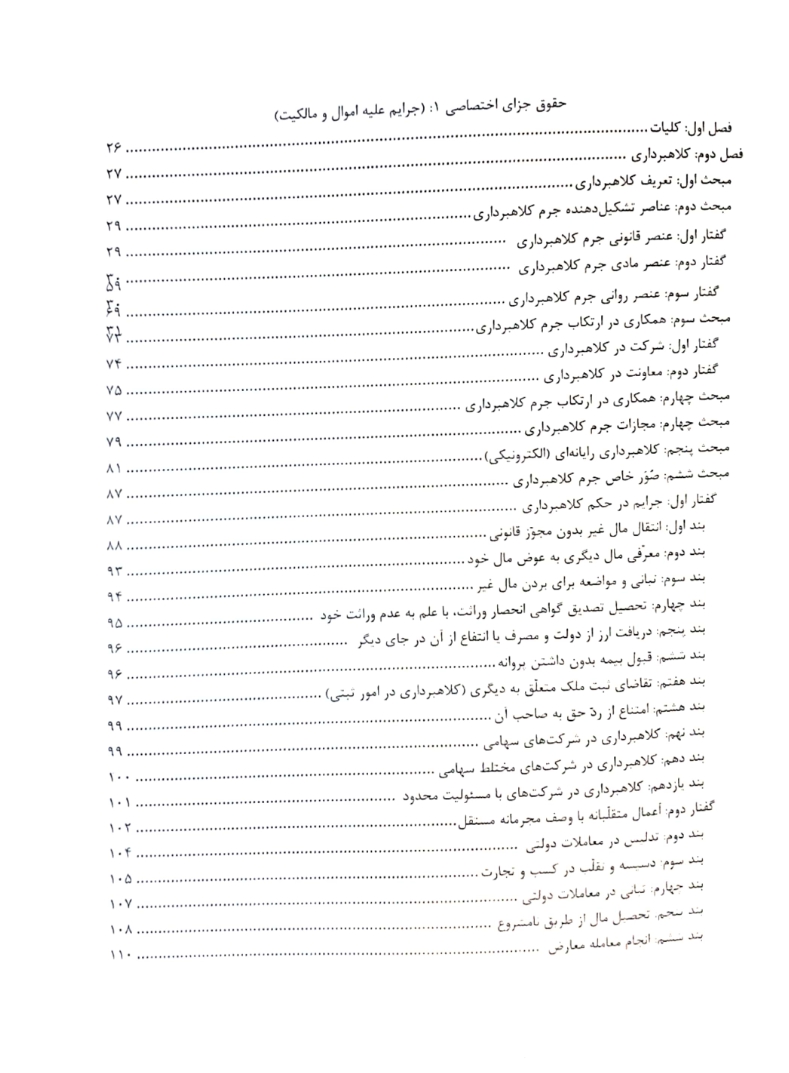 حقوق جزای اختصاصی ۱: (جرایم علیه اموال و مالکیت)
فصل اول: کلیات ........ ۲۶
فصل دوم: کلاهبرداری ........ ۲۷
مبحث اول: تعریف کلاهبرداری ........ ۲۷
مبحث دوم: عناصر تشکیل‌دهنده جرم کلاهبرداری ........ ۲۹
گفتار اول: عنصر قانونی جرم کلاهبرداری ........ ۲۹
گفتار دوم: عنصر مادی جرم کلاهبرداری ........
گفتار سوم: عنصر روانی جرم کلاهبرداری ........
مبحث سوم: همکاری در ارتکاب جرم کلاهبرداری ........
گفتار اول: شرکت در کلاهبرداری ........ ۷۴
گفتار دوم: معاونت در کلاهبرداری ........ ۷۵
مبحث چهارم: همکاری در ارتکاب جرم کلاهبرداری ........ ۷۷
مبحث چهارم: مجازات جرم کلاهبرداری ........ ۷۹
مبحث پنجم: کلاهبرداری رایانه‌ای (الکترونیکی) ........ ۸۱
مبحث ششم: صُوَر خاص جرم کلاهبرداری ........ ۸۷
گفتار اول: جرایم در حکم کلاهبرداری ........ ۸۷
بند اول: انتقال مال غیر بدون مجوّز قانونی ........ ۸۸
بند دوم: معرّفی مال دیگری به عوض مال خود ........ ۹۳
بند سوم: تبانی و مواضعه برای بردن مال غیر ........ ۹۴
بند چهارم: تحصیل تصدیق گواهی انحصار وراثت، با علم به عدم وراثت خود ........ ۹۵
بند پنجم: دریافت ارز از دولت و مصرف یا انتفاع از آن در جای دیگر ........ ۹۶
بند ششم: قبول بیمه بدون داشتن پروانه ........ ۹۶
بند هفتم: تقاضای ثبت ملک متعلّق به دیگری (کلاهبرداری در امور ثبتی) ........ ۹۷
بند هشتم: امتناع از ردّ حق به صاحب آن ........ ۹۹
بند نهم: کلاهبرداری در شرکت‌های سهامی ........ ۹۹
بند دهم: کلاهبرداری در شرکت‌های مختلط سهامی ........ ۱۰۰
بند یازدهم: کلاهبرداری در شرکت‌های با مسئولیت محدود ........ ۱۰۱
گفتار دوم: اَعمال متقلّبانه با وصف مجرمانه مستقل ........ ۱۰۲
بند دوم: تدلیس در معاملات دولتی ........ ۱۰۴
بند سوم: دسیسه و تقلّب در کسب و تجارت ........ ۱۰۵
بند چهارم: تبانی در معاملات دولتی ........ ۱۰۷
بند پنجم: تحصیل مال از طریق نامشروع ........ ۱۰۸
بند ششم: انجام معامله معارض ........ ۱۱۰